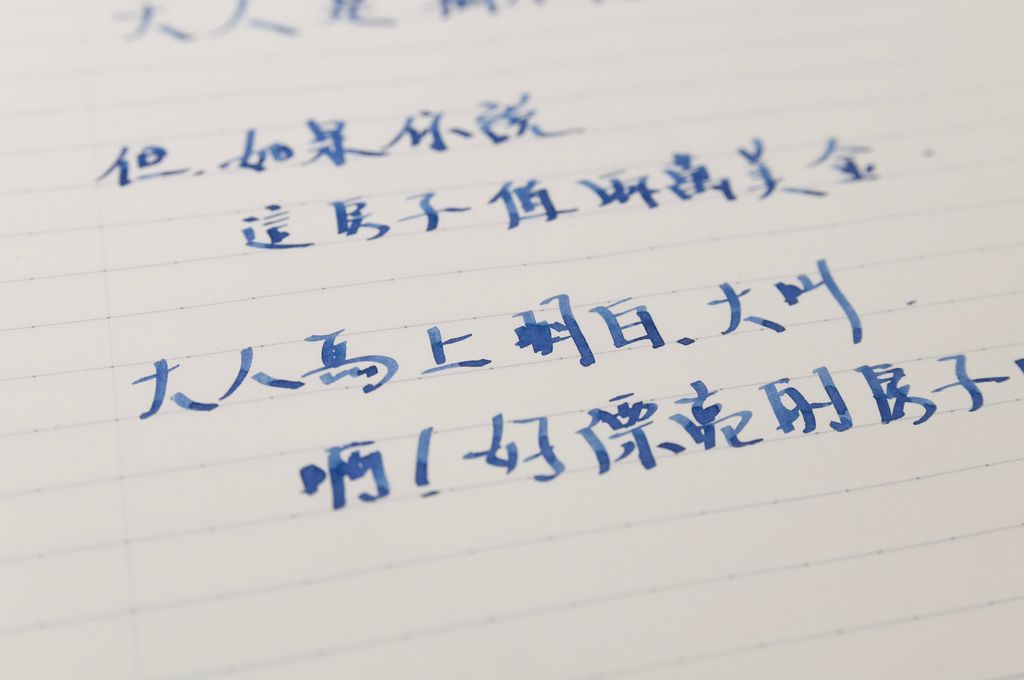 大人是
但.如果你說
這房子值兩萬美金.
大人馬上明白.大叫.
啊!好漂亮的房子